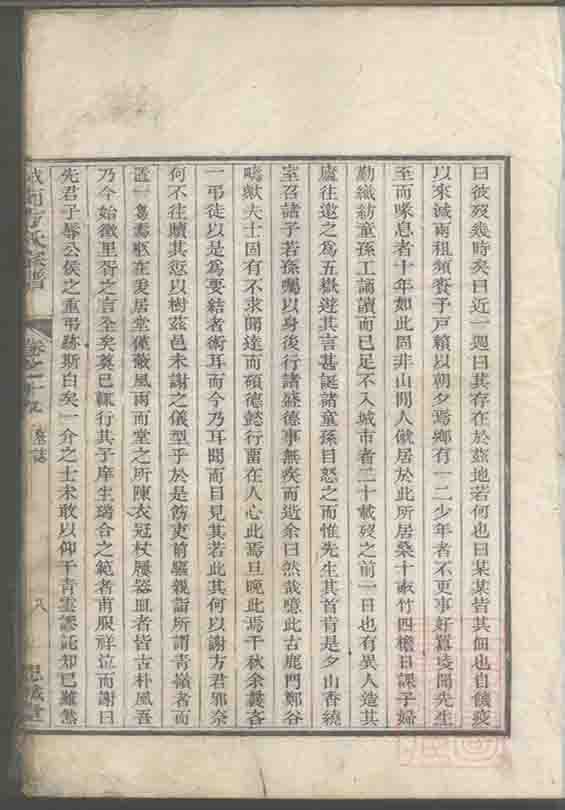 曰彼歿幾時矣曰近一週曰其存在於茲地若何也曰某某皆其佃也自饑疫
以來減兩租頻賚予戶賴以朝夕焉鄉有一二少年者不更事好囂凌聞先生
至而咪息者十年如此固非山間人僦居於此所居桑十畝竹四檐日課子婦
勤織紡童孫工誦讀而已足不入城市者二十載歿之前一日也有異人造其
廬往邀之為五嶽遊其言甚誕諸童孫目怒之而惟先生其首肯是夕山香繞
室召諸子若孫囑以身後行諸盛德事無疾而逝余曰然哉噫此古鹿門鄭谷
疇歟大士固有不求聞達而碩德懿行留在人心此焉旦晚此焉千秋余曩吝
一弔徒以是為要結者術耳而今乃耳聞而目見其若此其何以謝方君邪奈
何不往贖其愆以樹茲邑未謝之儀型乎於是飭吏前驅親詣所謂青嶺者而
置一芻焉軀在爰居堂僅蔽風雨而堂之所陳衣冠杖屨器皿者皆古朴風吾
乃今始徵里胥之言全矣奠已輒行其子庠生瑞合之範者甫服祥泣而謝曰
先君子辱公侯之重弔跡斯白矣一介之士未敢以仰干青雲諉託却已雖然
方氏宗譜
卷之十九
墓誌
八
思誠堂